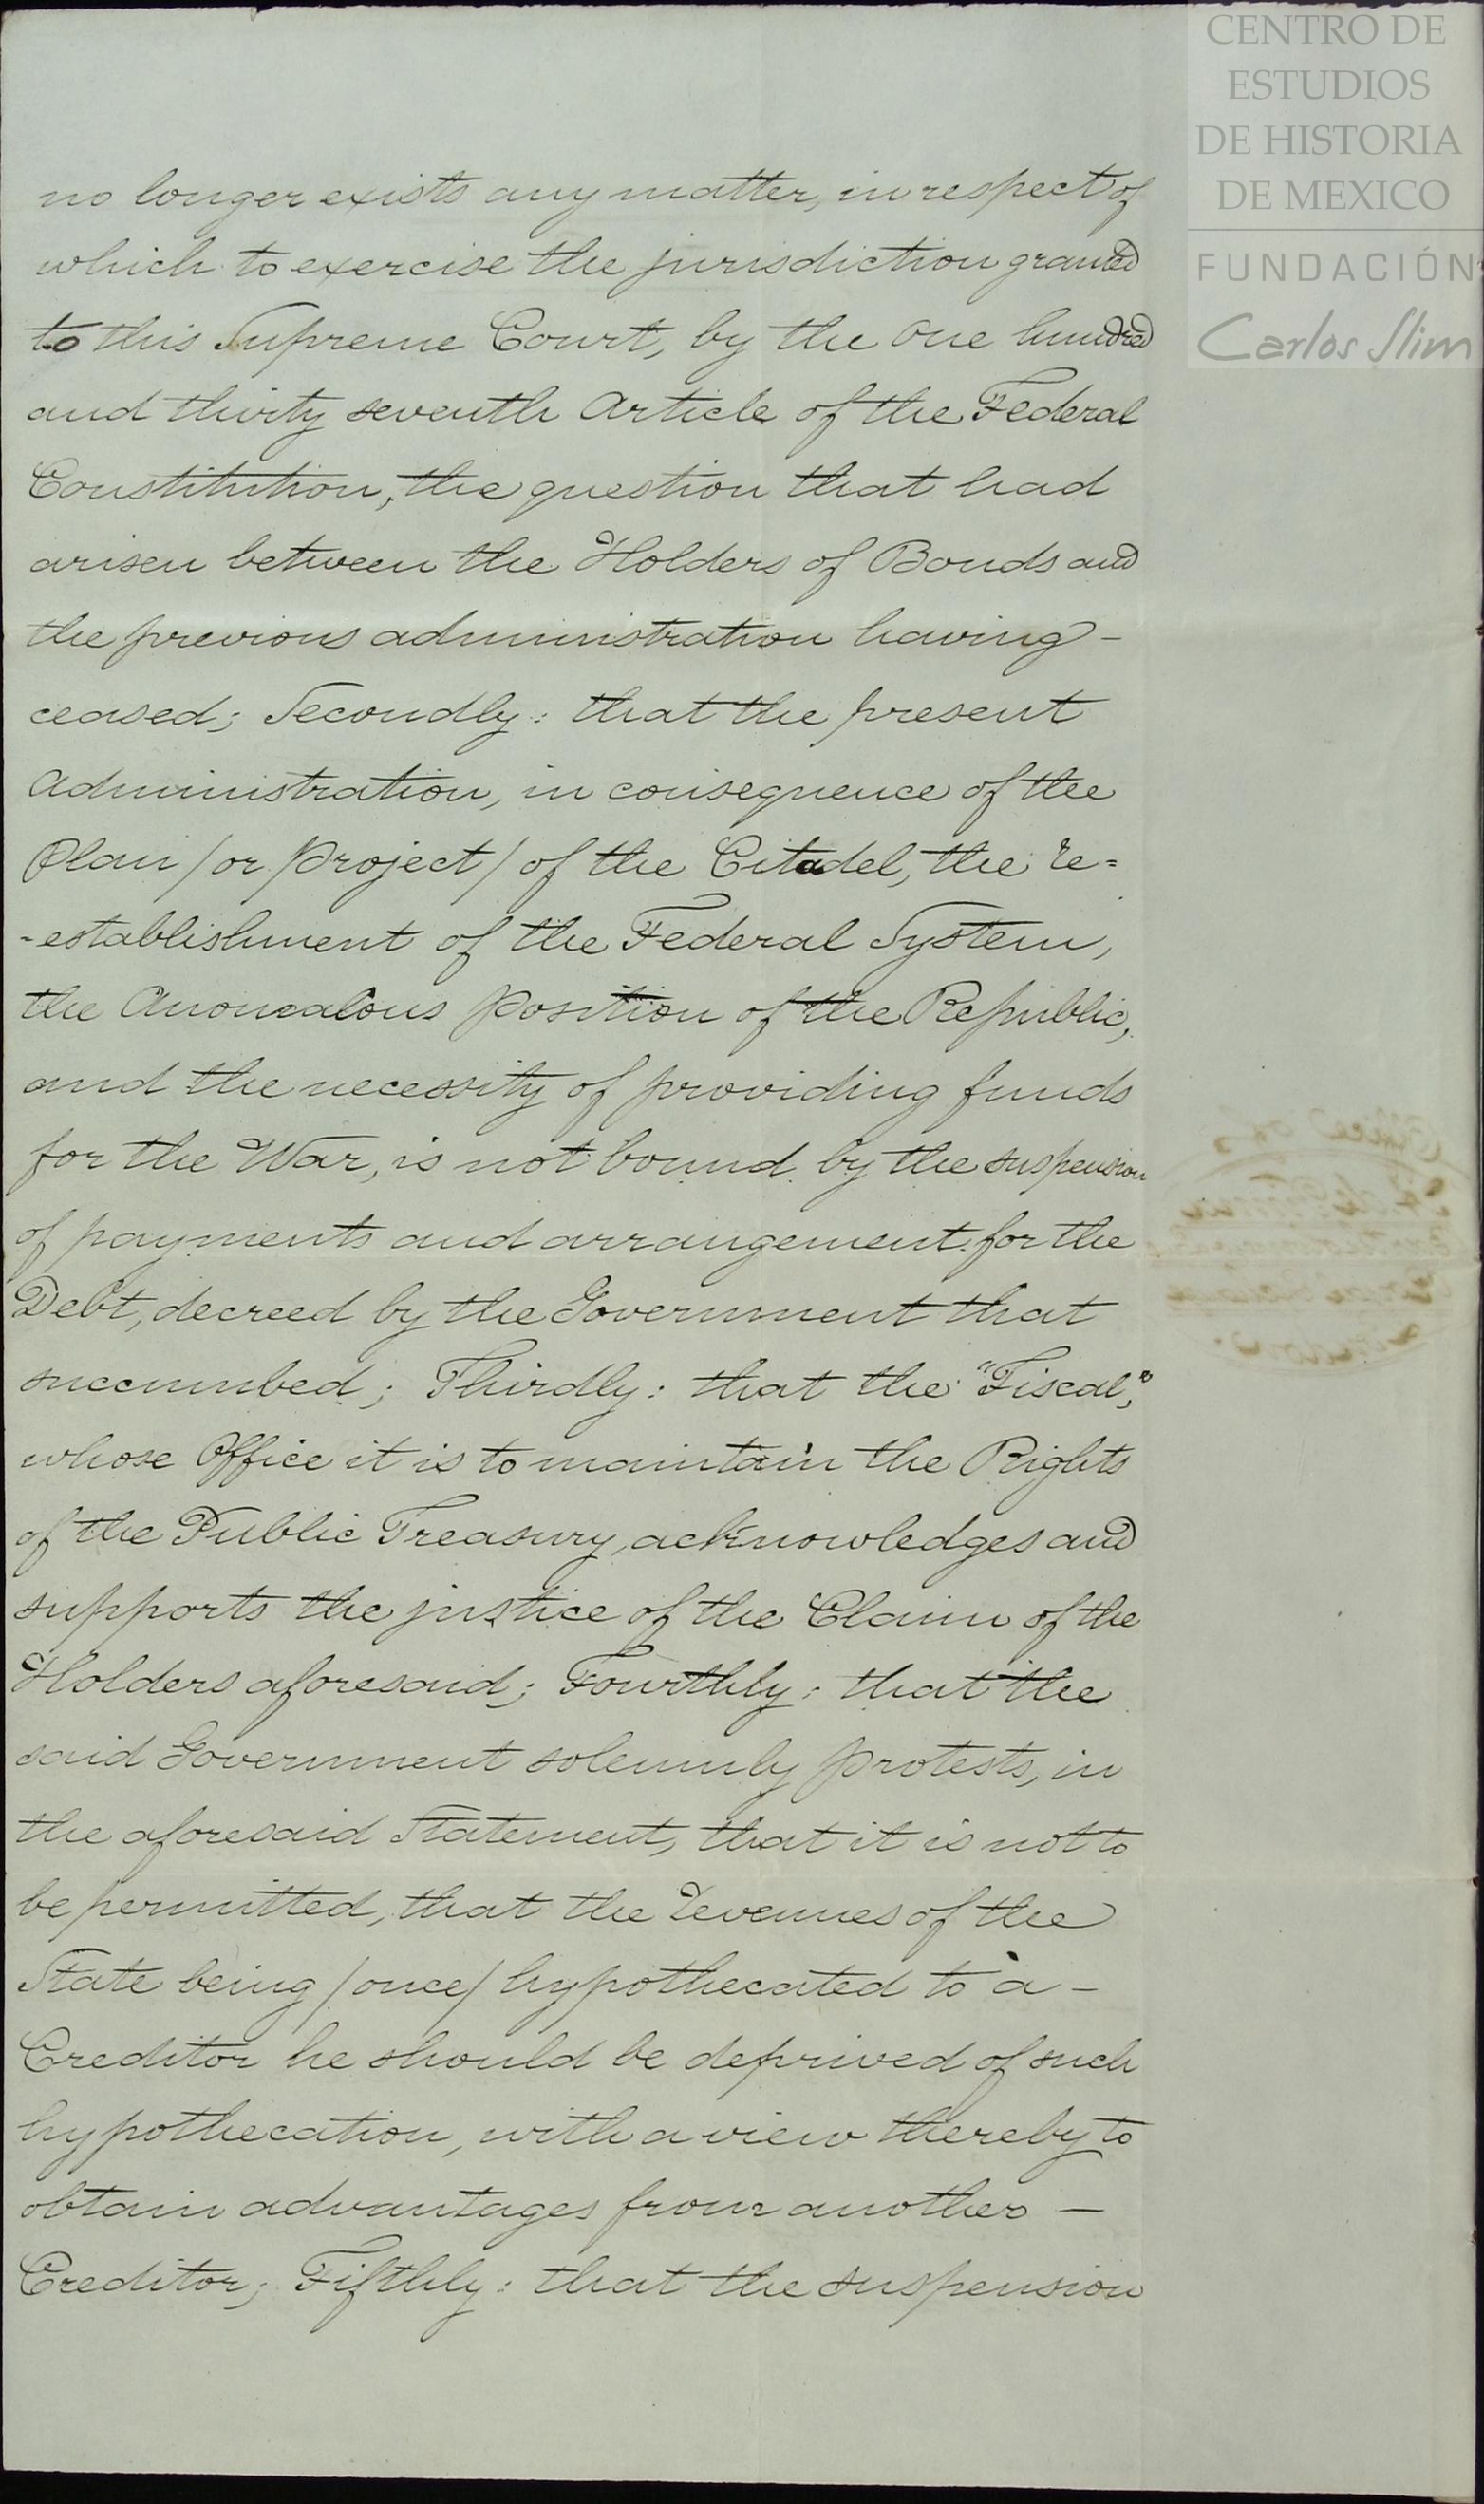 CENTRO DE
ESTUDIOS
DE HISTORIA
DE MEXICO
FUNDACIÓN
Carlos Slim
no longer exists any matter, in respect of
which to exercise the jurisdiction granted
to this Supreme Court, by the One hundred
and thirty seventh Article of the Federal
Constitution, the question that had
arisen between the Holders of Bonds and
the previous administration having -
ceased; Secondly: that the present
Administration, in consequence of the
Plan /or Project/ of the Citadel, the re=
-establishment of the Federal System,
the Anomalous Position of the Republic,
and the necessity of providing funds
for the War, is not bound by the suspension
of payments and arrangement for the
Debt, decreed by the Government that
succumbed; Thirdly: that the "Fiscal,"
whose Office it is to maintain the Rights
of the Public Treasury, acknowledges and
supports the justice of the Claim of the
Holders aforesaid; Fourthly: that the
said Government solemnly protests, in
the aforesaid Statement, that it is not to
be permitted, that the Revenues of the
State being /once/ hypothecated to a -
Creditor he should be deprived of such
hypothecation, with a view thereby to
obtain advantages from another -
Creditor; Fifthly: that the suspension